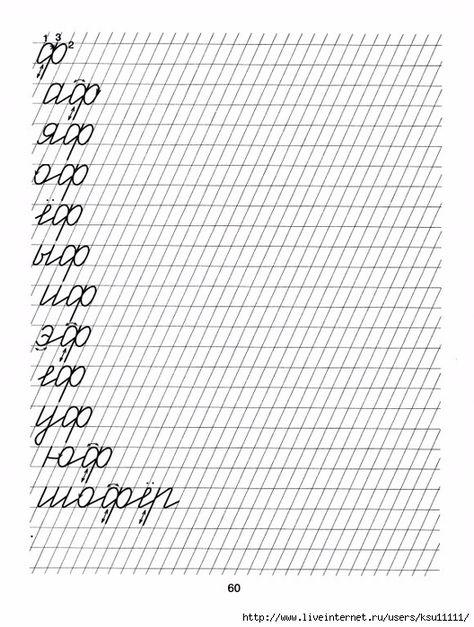 1 3 2
ф
аф
яф
оф
ёф
ыф
иф
эф
еф
уф
юф
шофёр
60
http://www.liveinternet.ru/users/ksu11111/